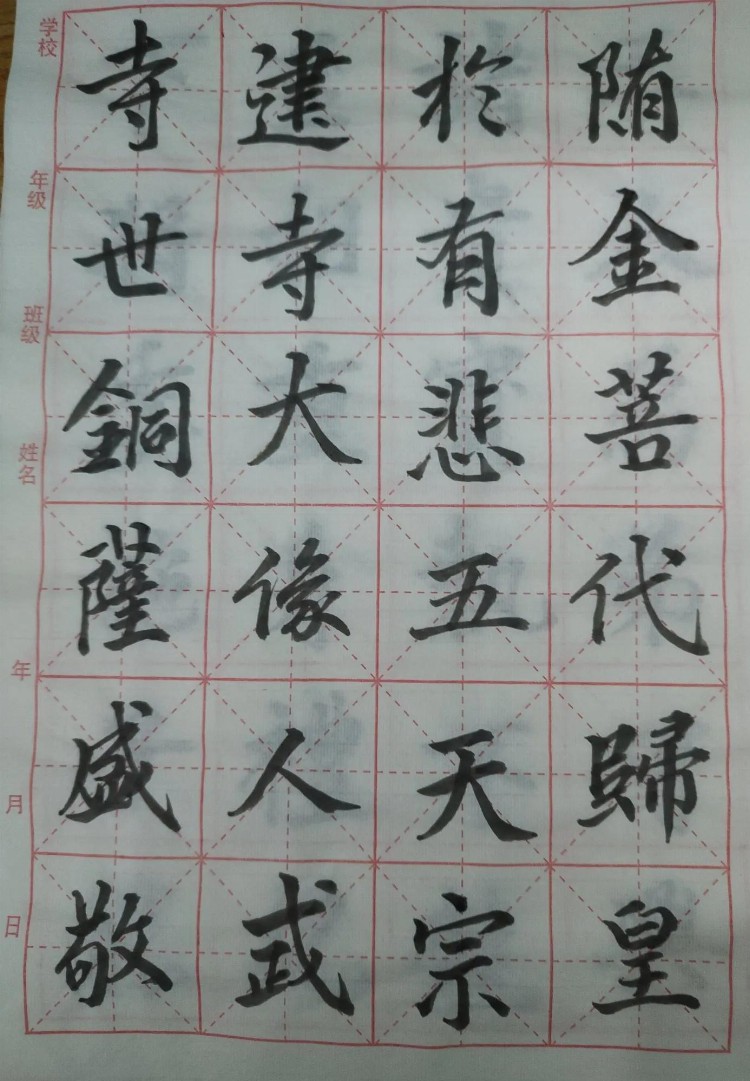 学校
年级
班级
姓名
年
月
日
寺建於隋
世寺有金
銅大悲菩
薩像五代
盛人天歸
敬武宗皇